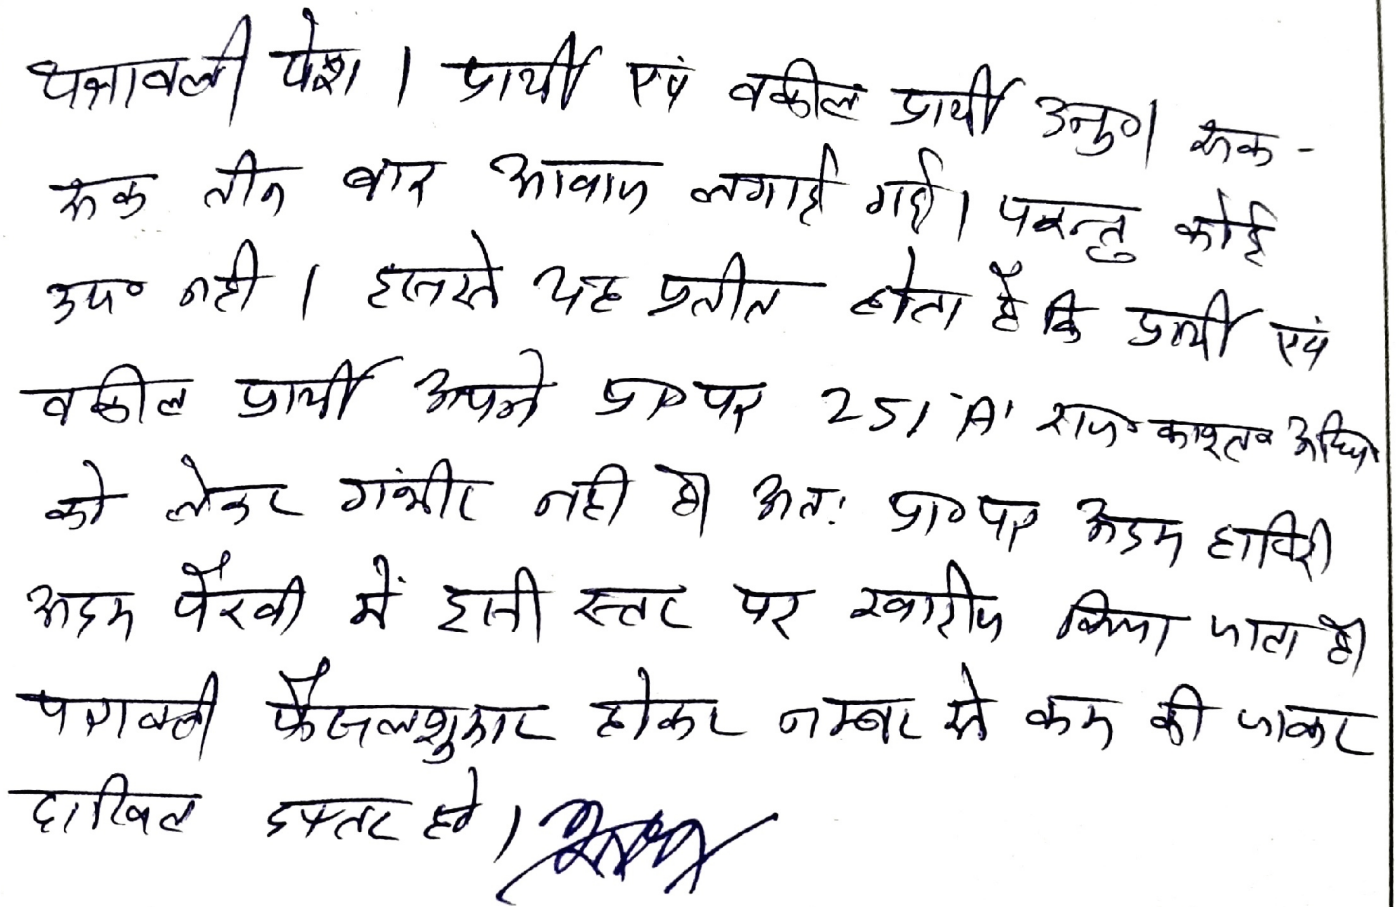 पत्रावली पेश । प्रार्थी एवं वकील प्रार्थी अनु०। रूक-
रूक तीन बार आवाज लगाई गई। परन्तु कोई
उप० नही । इससे यह प्रतीत होता है कि प्रार्थी एवं
वकील प्रार्थी अपने प्रा०पत्र 251 'A' राज० काश्त० अधि०
को लेकर गंभीर नही है। अतः प्रा०पत्र अदम हाजिरी
अदम पैरवी में इसी स्तर पर खारीज किया जाता है।
पत्रावली फैसलशुमार होकर नम्बर से कम की जाकर
दाखिल दफ्तर हो।